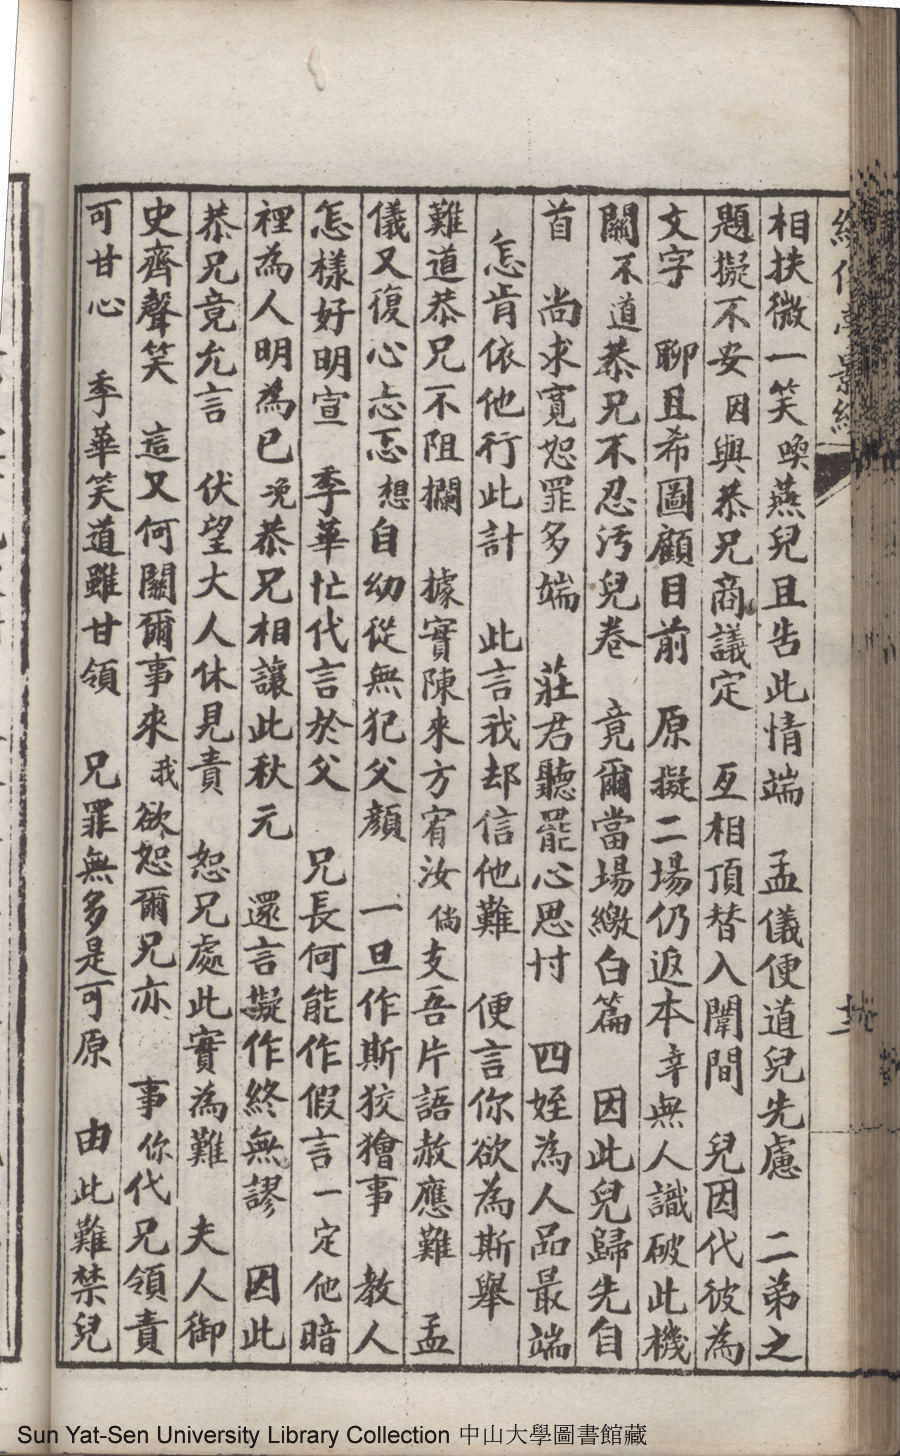 相扶微一笑喚燕兒且告此情端　孟儀便道兒先慮　二弟之
題擬不安因與恭兄商議定　互相頂替入闈間　兒因代彼為
文字　聊且希圖顧目前　原擬二場仍返本幸無人識破此機
關不道恭兄不忍污兒卷　竟爾當場繳白篇　因此兒歸先自
首　尚求寬恕罪多端　莊君聽罷心思忖　四姪為人品最端
怎肯依他行此計　此言我却信他難　便言你欲為斯舉
難道恭兄不阻攔　據實陳來方宥汝倘支吾片語赦應難　孟
儀又復心忐忑想自幼從無犯父顏　一旦作斯狡獪事　教人
怎樣好明宣　季華忙代言於父　兄長何能作假言一定他暗
裡為人明為己浼恭兄相讓此秋元　還言擬作終無謬　因此
恭兄竟允言　伏望大人休見責　恕兄處此實為難　夫人御
史齊聲笑　這又何關爾事來我欲恕爾兄亦　事你代兄領責
可甘心　季華笑道雖甘領　兄罪無多是可原　由此難禁兒
Sun Yat-Sen University Library Collection 中山大學圖書館藏